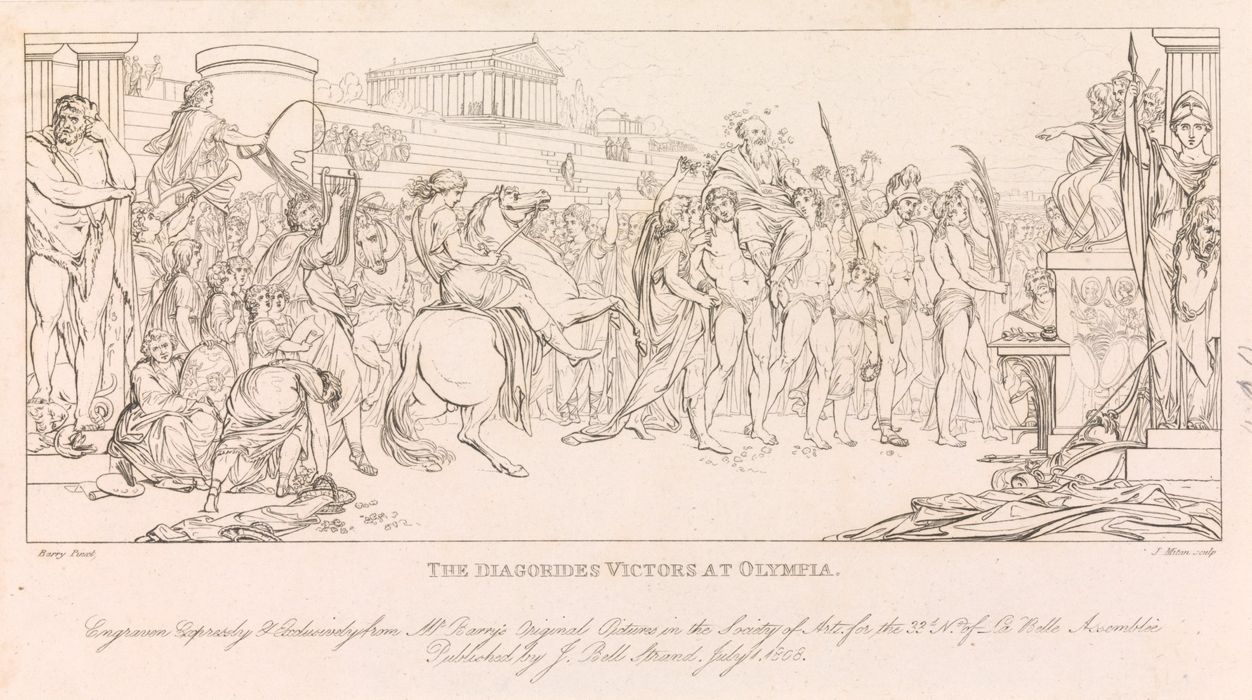 Barry Pinxt,
J. Mitan sculp
THE DIAGORIDES VICTORS AT OLYMPIA.
Engraven Expressly & Exclusively from Mr. Barry's Original Pictures in the Society of Arts. for the 32d. No. of La Belle Assemblée
Published by J. Bell Strand, July 1, 1808.